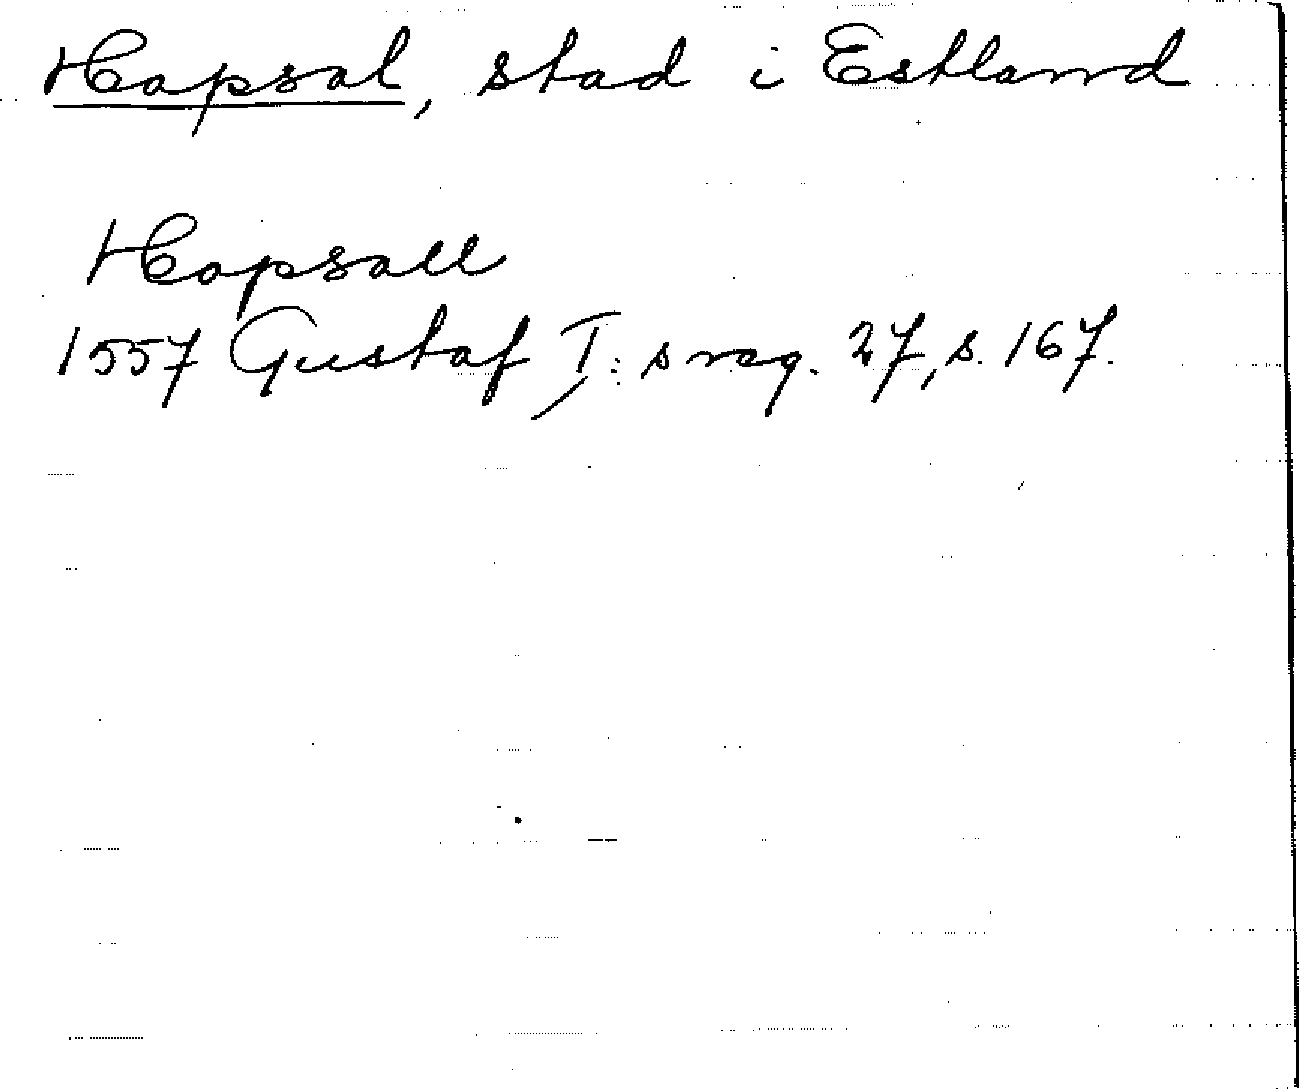 Hapsal, stad i Estland
Hapsall
1557 Gustaf I:s reg. 27, s. 167.